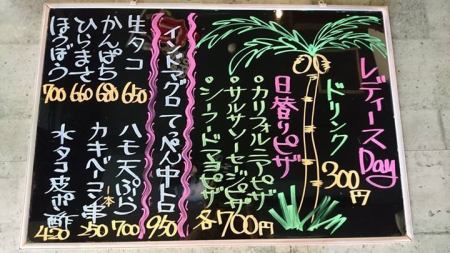 レディースDay
ドリンク 300円
日替りピザ
・カリフォルニアピザ
・サルサソーセージピザ
・シーフードマヨピザ
各700円
インドマグロ てっぺん中トロ 950
生タコ 650
かんぱち 680
ひらまさ 660
ほうぼう 700
ハモ天ぷら 700
カキベーコン串 1本 250
水タコ 皮ポン酢 420